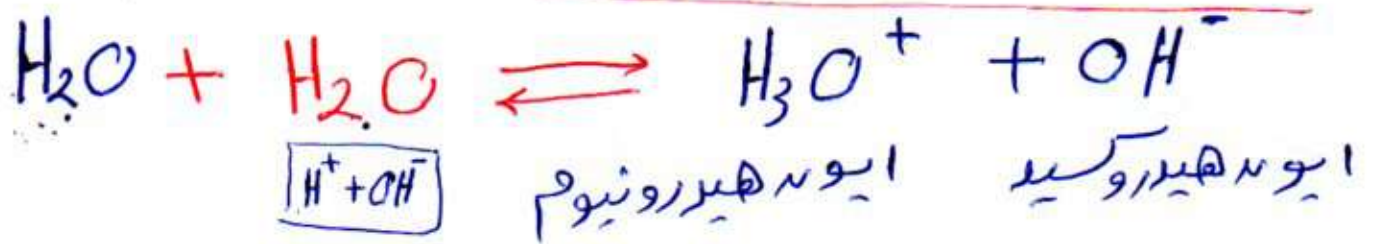 H₂O + H₂O ⇌ H₃O⁺ + OH⁻
H⁺ + OH⁻
ایون هیدرونیوم ایون هیدروکسید